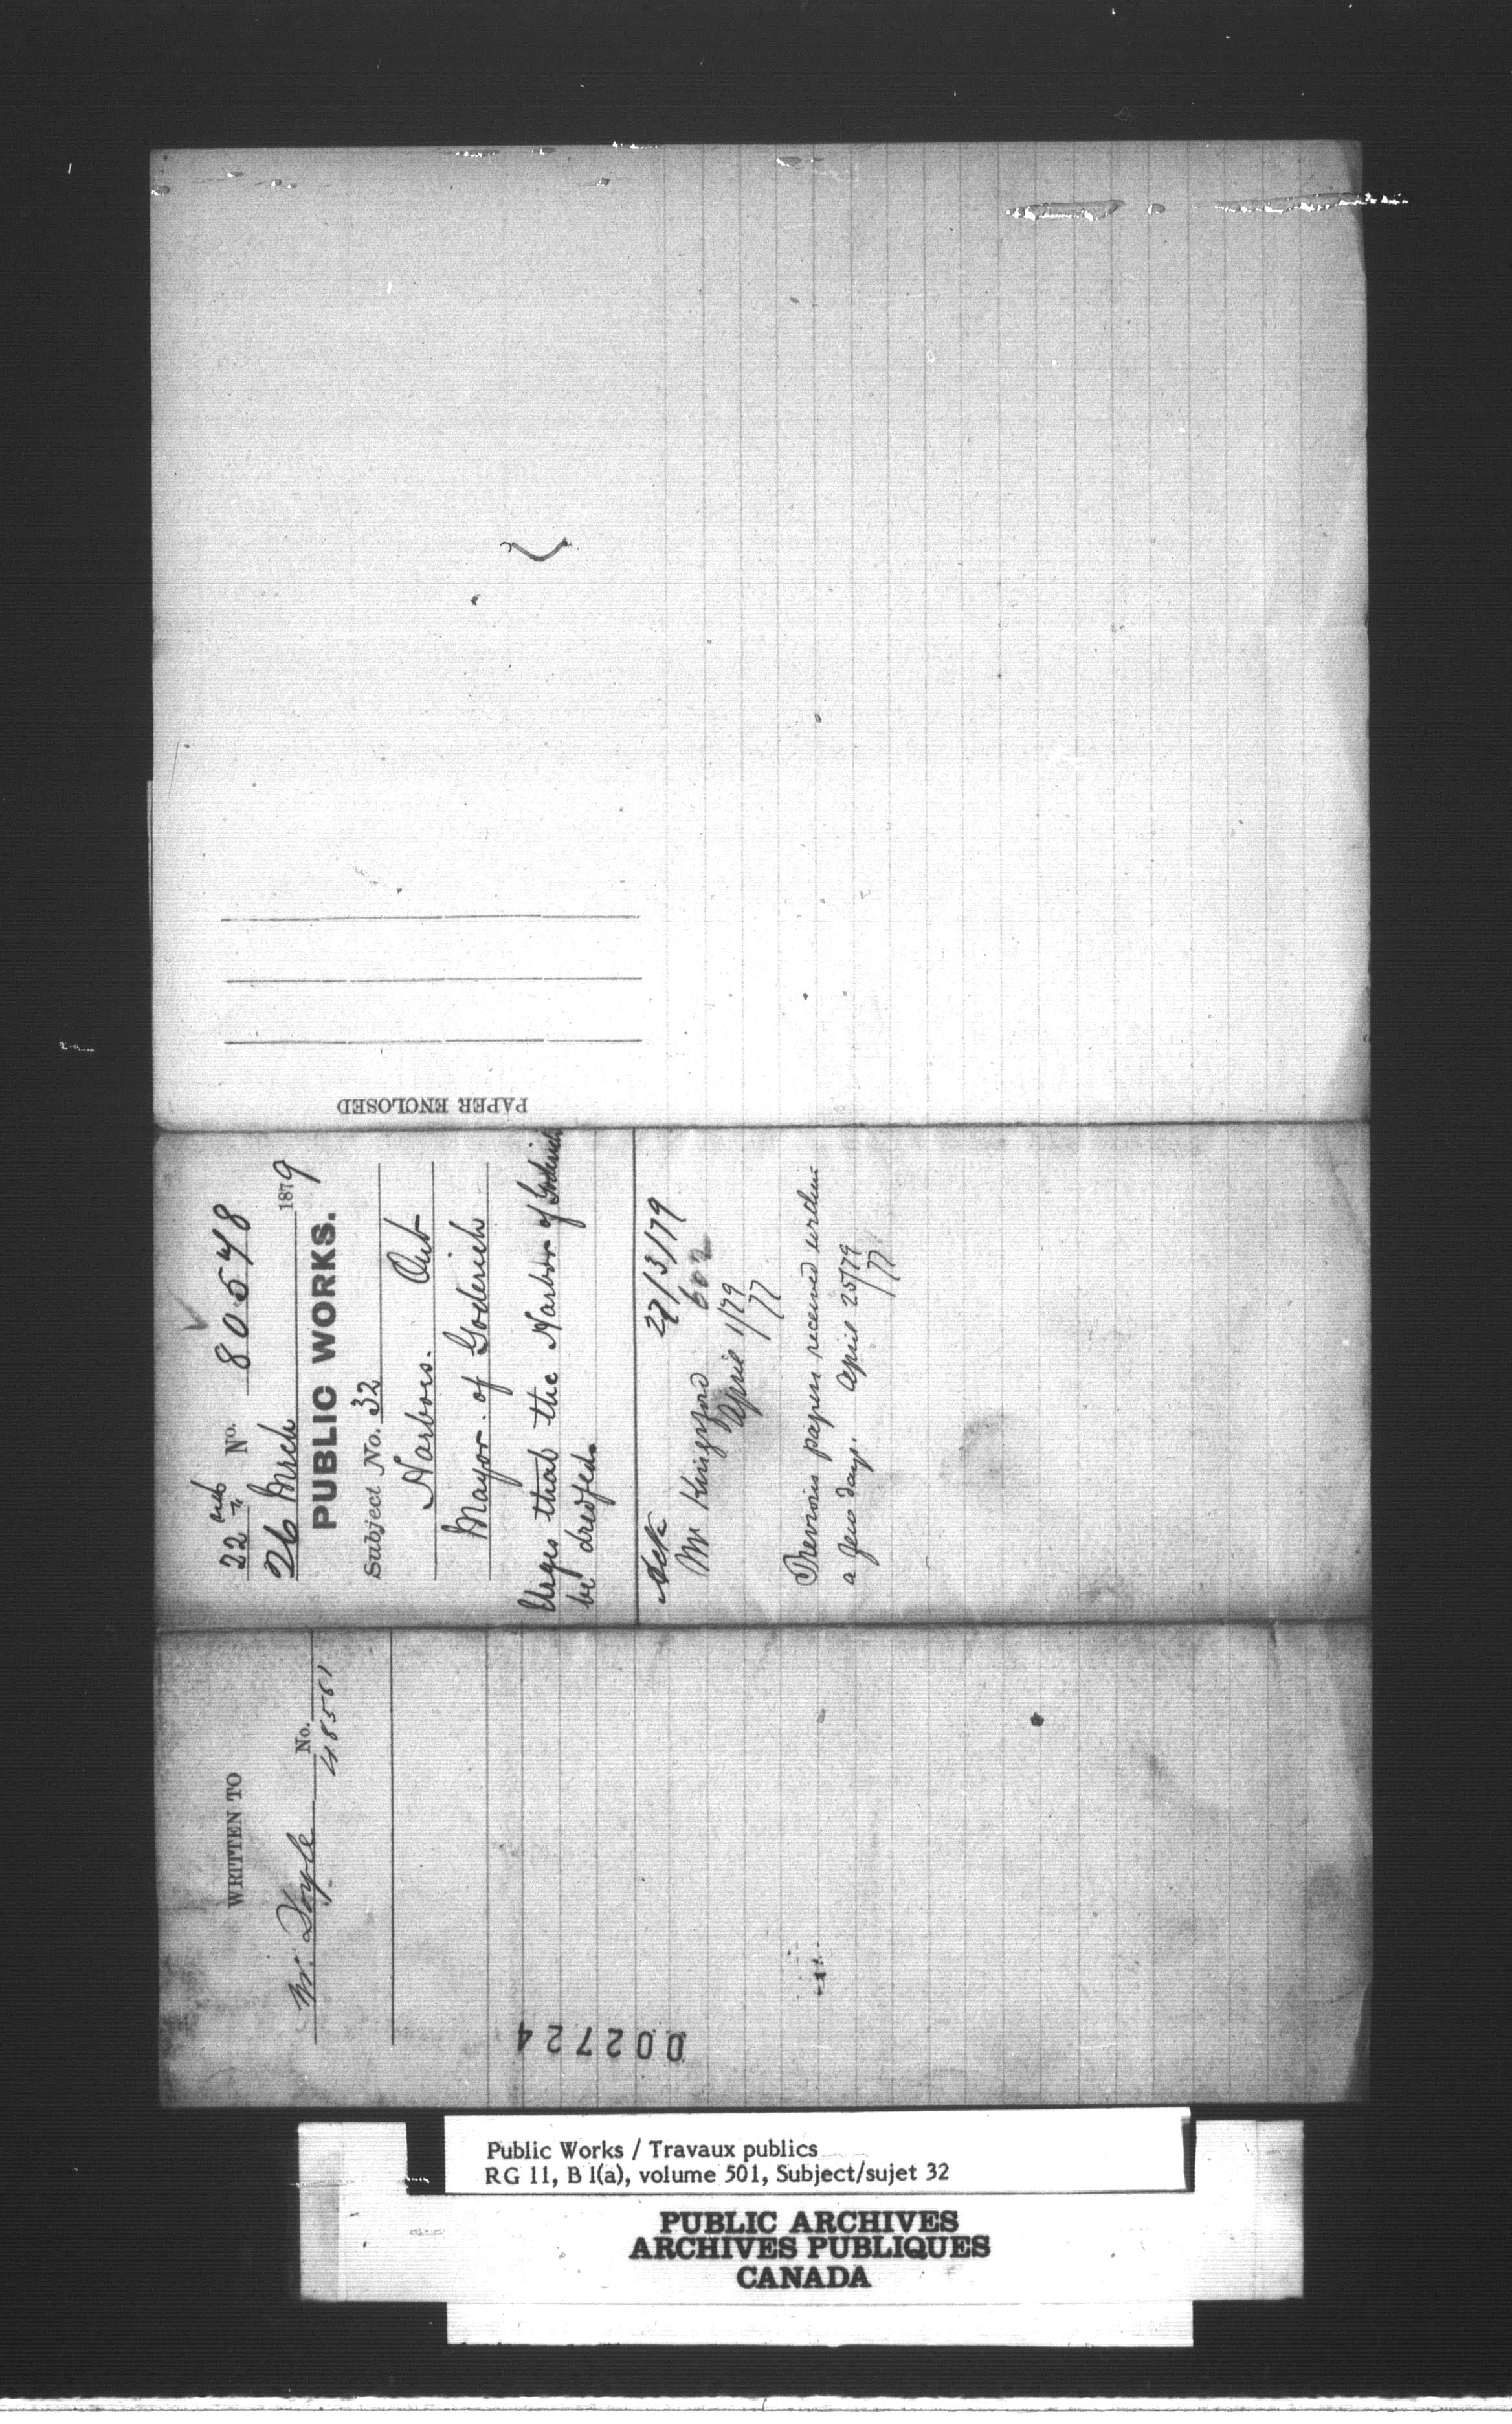 PAPER ENCLOSED
22nd No. 80578
26 Mrch 1879
PUBLIC WORKS.
Subject No. 32
Harbors. Ont
Mayor of Goderich
Urges that the Harbor of Goderich
be dredged.
Ack 27/3/79
Mr Kingsford 602
April 1/79
/77
Previous papers received within
a few days. April 25/79
/77
WRITTEN TO
No.
Mr. Doyle 48561
002724
Public Works / Travaux publics
RG 11, B 1(a), volume 501, Subject/sujet 32
PUBLIC ARCHIVES
ARCHIVES PUBLIQUES
CANADA